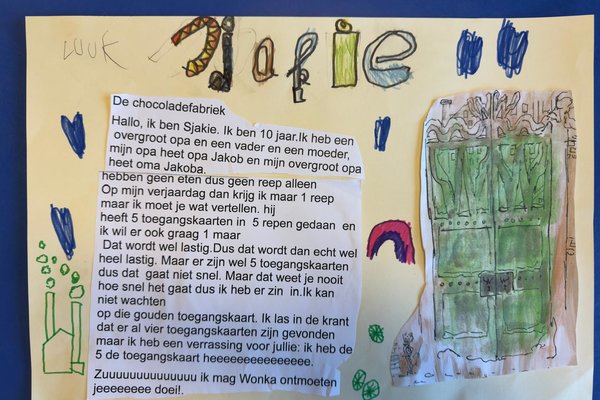 Luuk
Sjakie
De chocoladefabriek
Hallo, ik ben Sjakie. Ik ben 10 jaar.Ik heb een
overgroot opa en een vader en een moeder,
mijn opa heet opa Jakob en mijn overgroot opa
heet oma Jakoba.
hebben geen eten dus geen reep alleen
Op mijn verjaardag dan krijg ik maar 1 reep
maar ik moet je wat vertellen. hij
heeft 5 toegangskaarten in 5 repen gedaan en
ik wil er ook graag 1 maar
Dat wordt wel lastig.Dus dat wordt dan echt wel
heel lastig. Maar er zijn wel 5 toegangskaarten
dus dat gaat niet snel. Maar dat weet je nooit
hoe snel het gaat dus ik heb er zin in.Ik kan
niet wachten
op die gouden toegangskaart. Ik las in de krant
dat er al vier toegangskaarten zijn gevonden
maar ik heb een verrassing voor jullie: ik heb de
5 de toegangskaart heeeeeeeeeeeeeee.
Zuuuuuuuuuuuuuu ik mag Wonka ontmoeten
jeeeeeeee doei!.